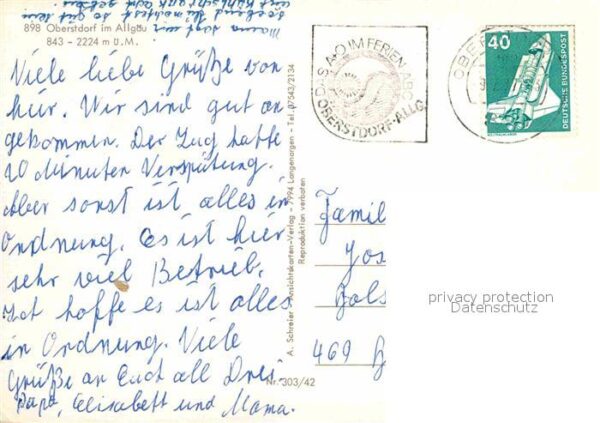 898 Oberstdorf im Allgäu
843 - 2224 m ü.M.
Viele liebe Grüße von
hier. Wir sind gut an
gekommen. Der Zug hatte
20 Minuten Verspätung.
Aber sonst ist alles in
Ordnung. Es ist hier
sehr viel Betrieb.
Ich hoffe es ist alles
in Ordnung. Viele
Grüße an Euch all Drei
Papa, Elisabett und Mama.
Mama sagt wir
möchtest so gut sein
A. Schreier · Ansichtskarten-Verlag · 7994 Langenargen · Tel. 07543/2134
Reproduktion verboten
Nr. 303/42
D.S.A.O IM FERIEN
OBERSTDORF-ALLG.
OBERST
40
DEUTSCHE BUNDESPOST
Famil
Jos
Bols
469 H
privacy protection
Datenschutz